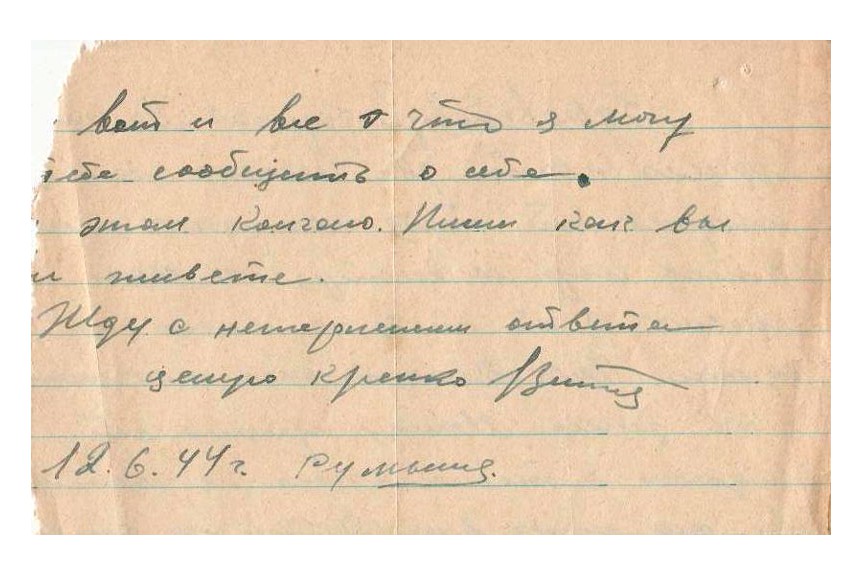 вот и все что я могу
тебе сообщить о себе.
этом кончаю. Пиши как вы
живете.
Жду с нетерпением ответа
целую крепко Витя
12.6.44 г. Румыния.